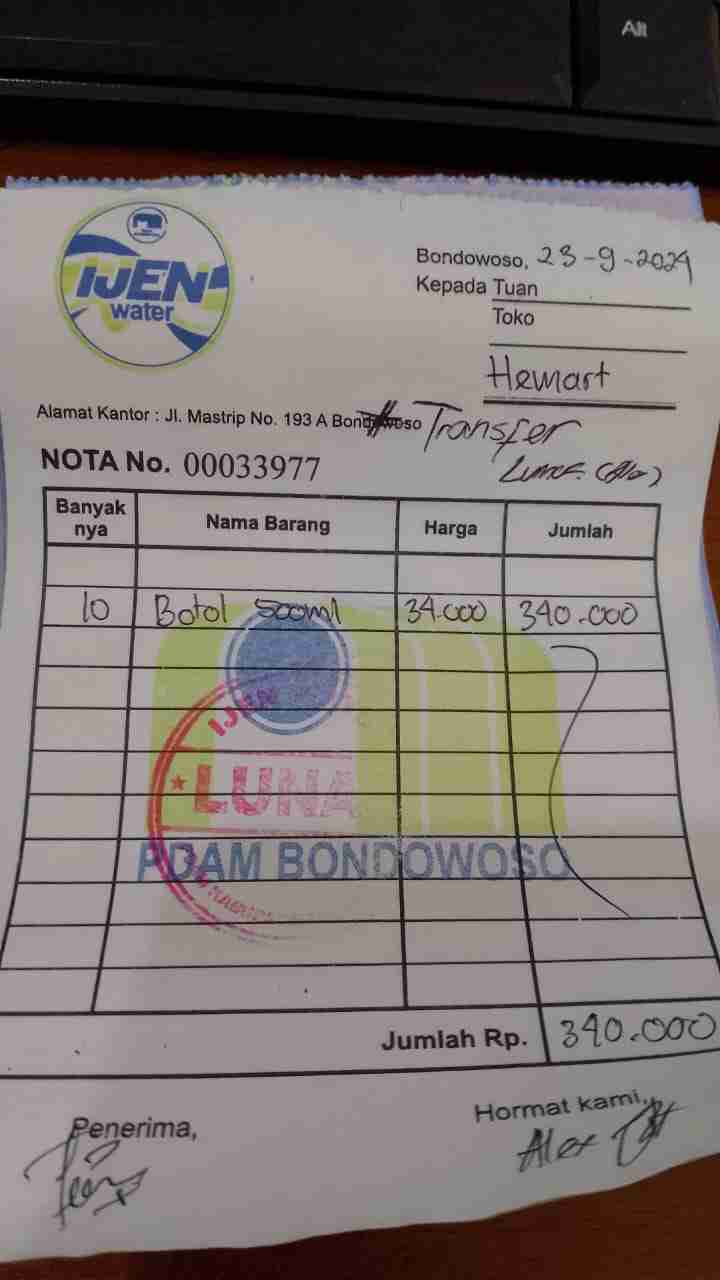 Alt
IJEN
water
Bondowoso, 23-9-2024
Kepada Tuan
Toko
Hemart
Alamat Kantor : Jl. Mastrip No. 193 A Bondowoso
# Transfer
NOTA No. 00033977
Banyak nya Nama Barang Harga Jumlah
10 Botol 500ml 34.000 340.000
IJEN
LUNA
PDAM BONDOWOSO
Jumlah Rp. 340.000
Penerima, Hormat kami,
Alex